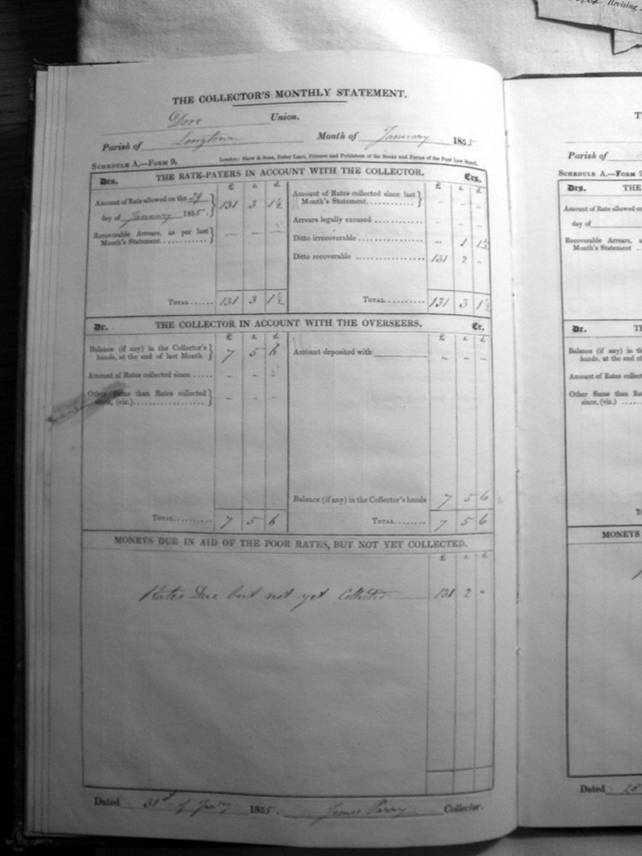 Revising
THE COLLECTOR'S MONTHLY STATEMENT.
Dore Union.
Parish of Longtown Month of January 1855
SCHEDULE A.—FORM 9. London: Shaw & Sons, Fetter Lane, Printers and Publishers of the Books and Forms of the Poor Law Board.
Drs. THE RATE-PAYERS IN ACCOUNT WITH THE COLLECTOR. Crs.
£ s. d. £ s. d.
Amount of Rate allowed on the 29 day of January 1855. 131 3 1½
Recoverable Arrears, as per last Month's Statement - - -
Amount of Rates collected since last Month's Statement - - -
Arrears legally excused - - -
Ditto irrecoverable - 1 1½
Ditto recoverable 131 2 -
TOTAL 131 3 1½ TOTAL 131 3 1½
Dr. THE COLLECTOR IN ACCOUNT WITH THE OVERSEERS. Cr.
£ s. d. £ s. d.
Balance (if any) in the Collector's hands, at the end of last Month 7 5 6
Amount of Rates collected since - - -
Other Sums than Rates collected since, (viz.) - - -
Amount deposited with - - -
Balance (if any) in the Collector's hands 7 5 6
TOTAL 7 5 6 TOTAL 7 5 6
MONEYS DUE IN AID OF THE POOR RATES, BUT NOT YET COLLECTED.
£ s. d.
Rates Due but not yet Collected 131 2 -
Dated 31st of Janry 1855. James Parry Collector.
Parish of
SCHEDULE A.—FORM 9
Drs. THE
Amount of Rate allowed
day of
Recoverable Arrears,
Month's Statement
Dr. TH
Balance (if any) in the
hands, at the end of
Amount of Rates collect
Other Sums than Ra
since, (viz.)
MONEYS
Dated